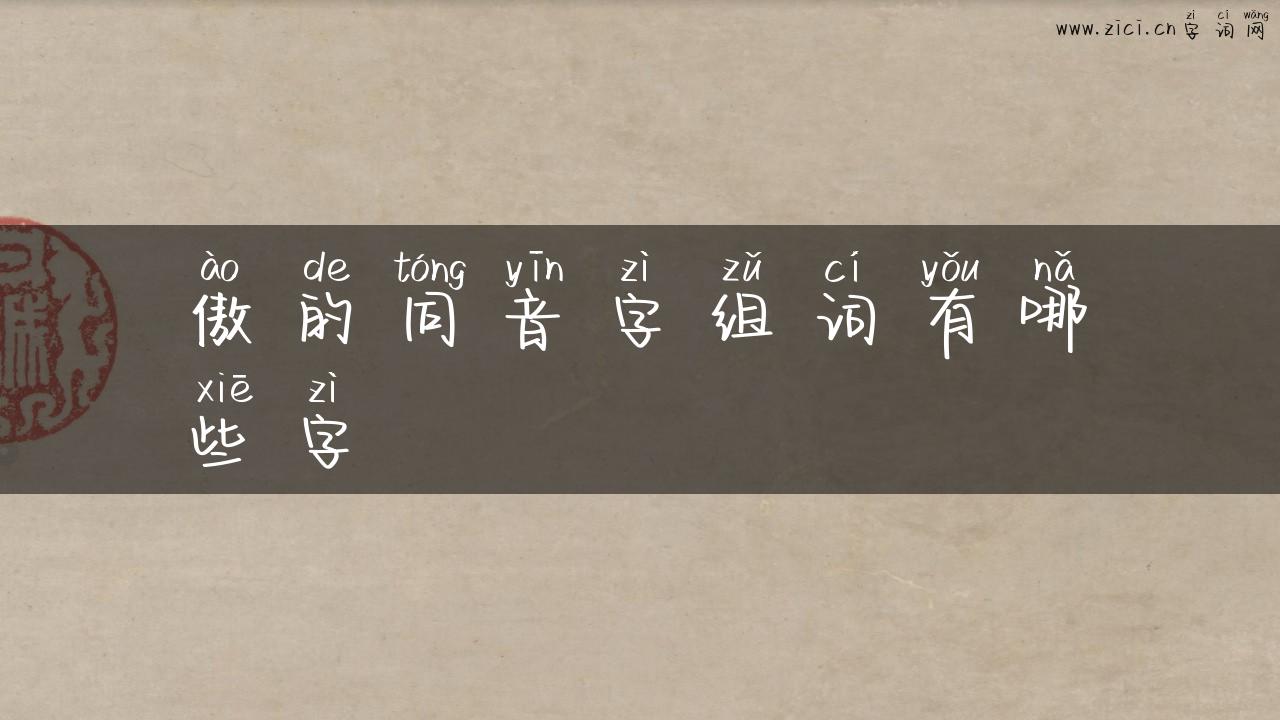 zì cí wǎng
www.zici.cn字词网
ào de tóng yīn zì zǔ cí yǒu nǎ
傲的同音字组词有哪
xiē zì
些字